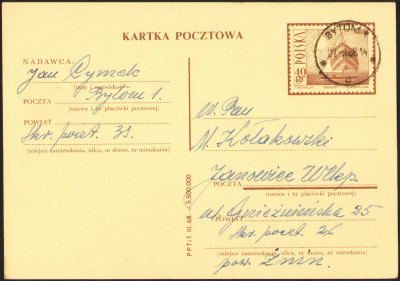 KARTKA POCZTOWA
NADAWCA:
Jan Cymek
(imię i nazwisko)
POCZTA Bytom 1.
(nazwa i nr placówki pocztowej)
POWIAT
Skr. poczt. 38.
(miejsce zamieszkania, ulica, nr domu, nr mieszkania)
PPiTT III. 68. — 5.500.000
POLSKA
40 GR
BYTOM
W. Pan
M. Kołakowski
Janowiec Wlkp.
POCZTA
(nazwa i nr placówki pocztowej)
ul Gnieźnieńska 25
Skr. poczt. 26
(miejsce zamieszkania, ulica, nr domu, nr mieszkania)
pow. Żnin.